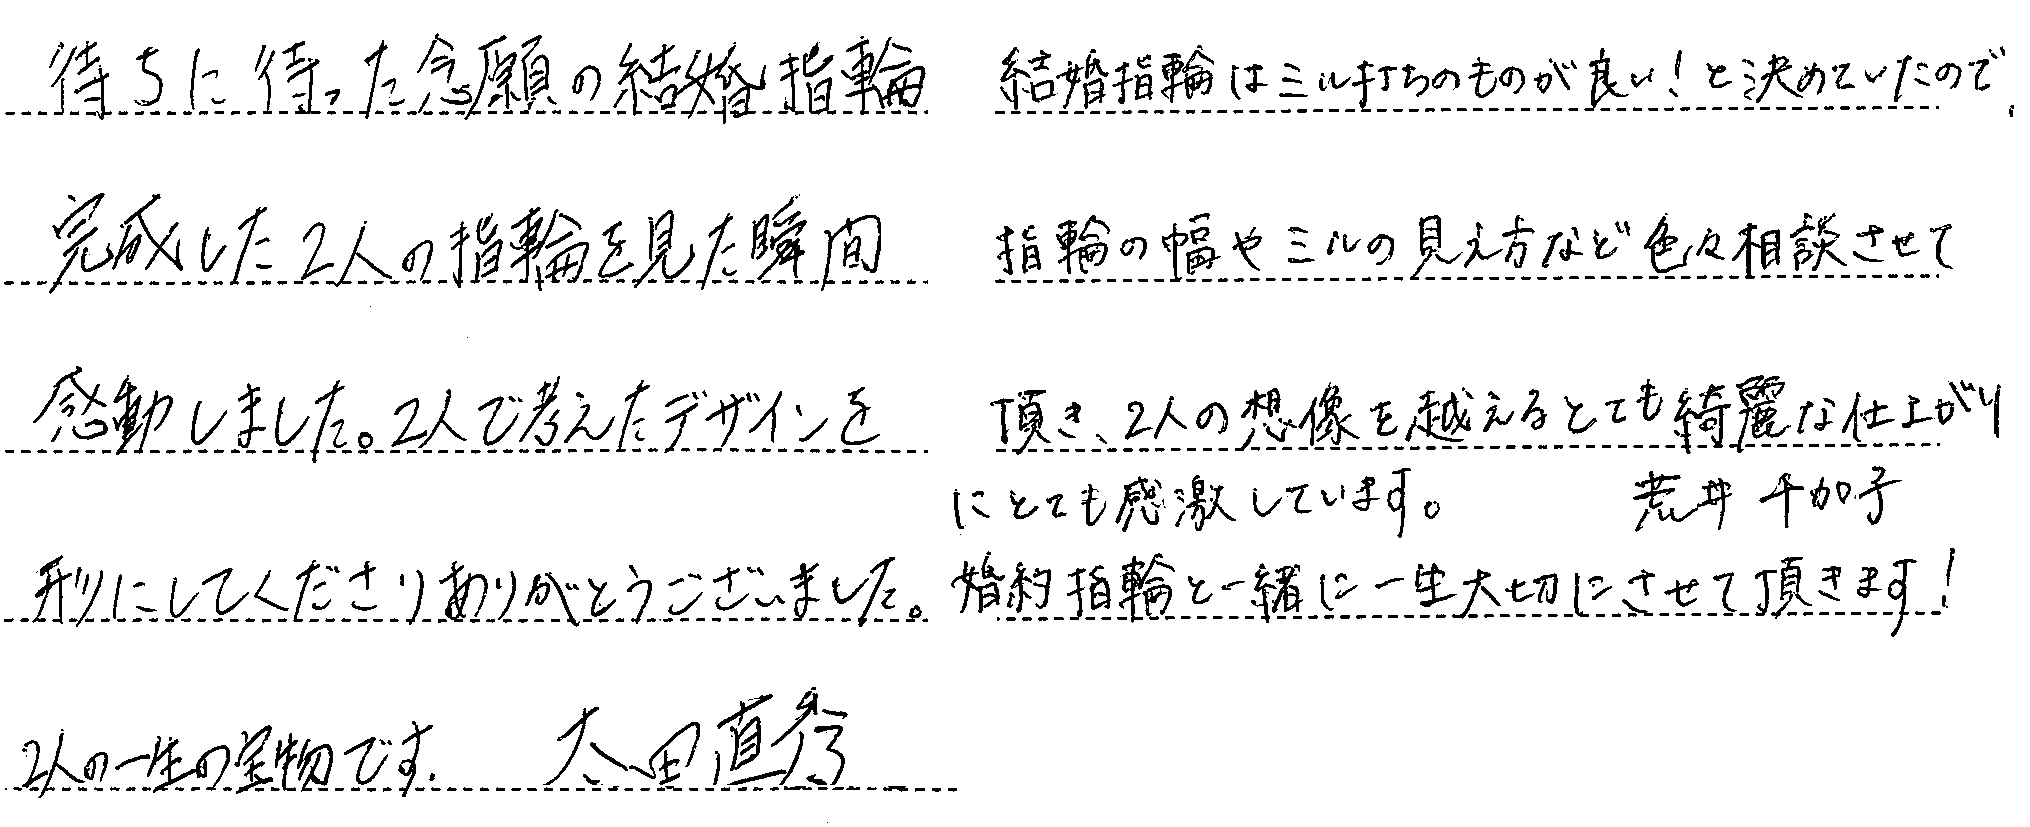 待ちに待った念願の結婚指輪
完成した2人の指輪を見た瞬間
感動しました。2人で考えたデザインを
形にしてくださりありがとうございました。
2人の一生の宝物です。 太田直
結婚指輪はミル打ちのものが良い！と決めていたので、
指輪の幅やミルの見え方など色々相談させて
頂き、2人の想像を越えるとても綺麗な仕上がり
にとても感激しています。 荒井 千加子
婚約指輪と一緒に一生大切にさせて頂きます！